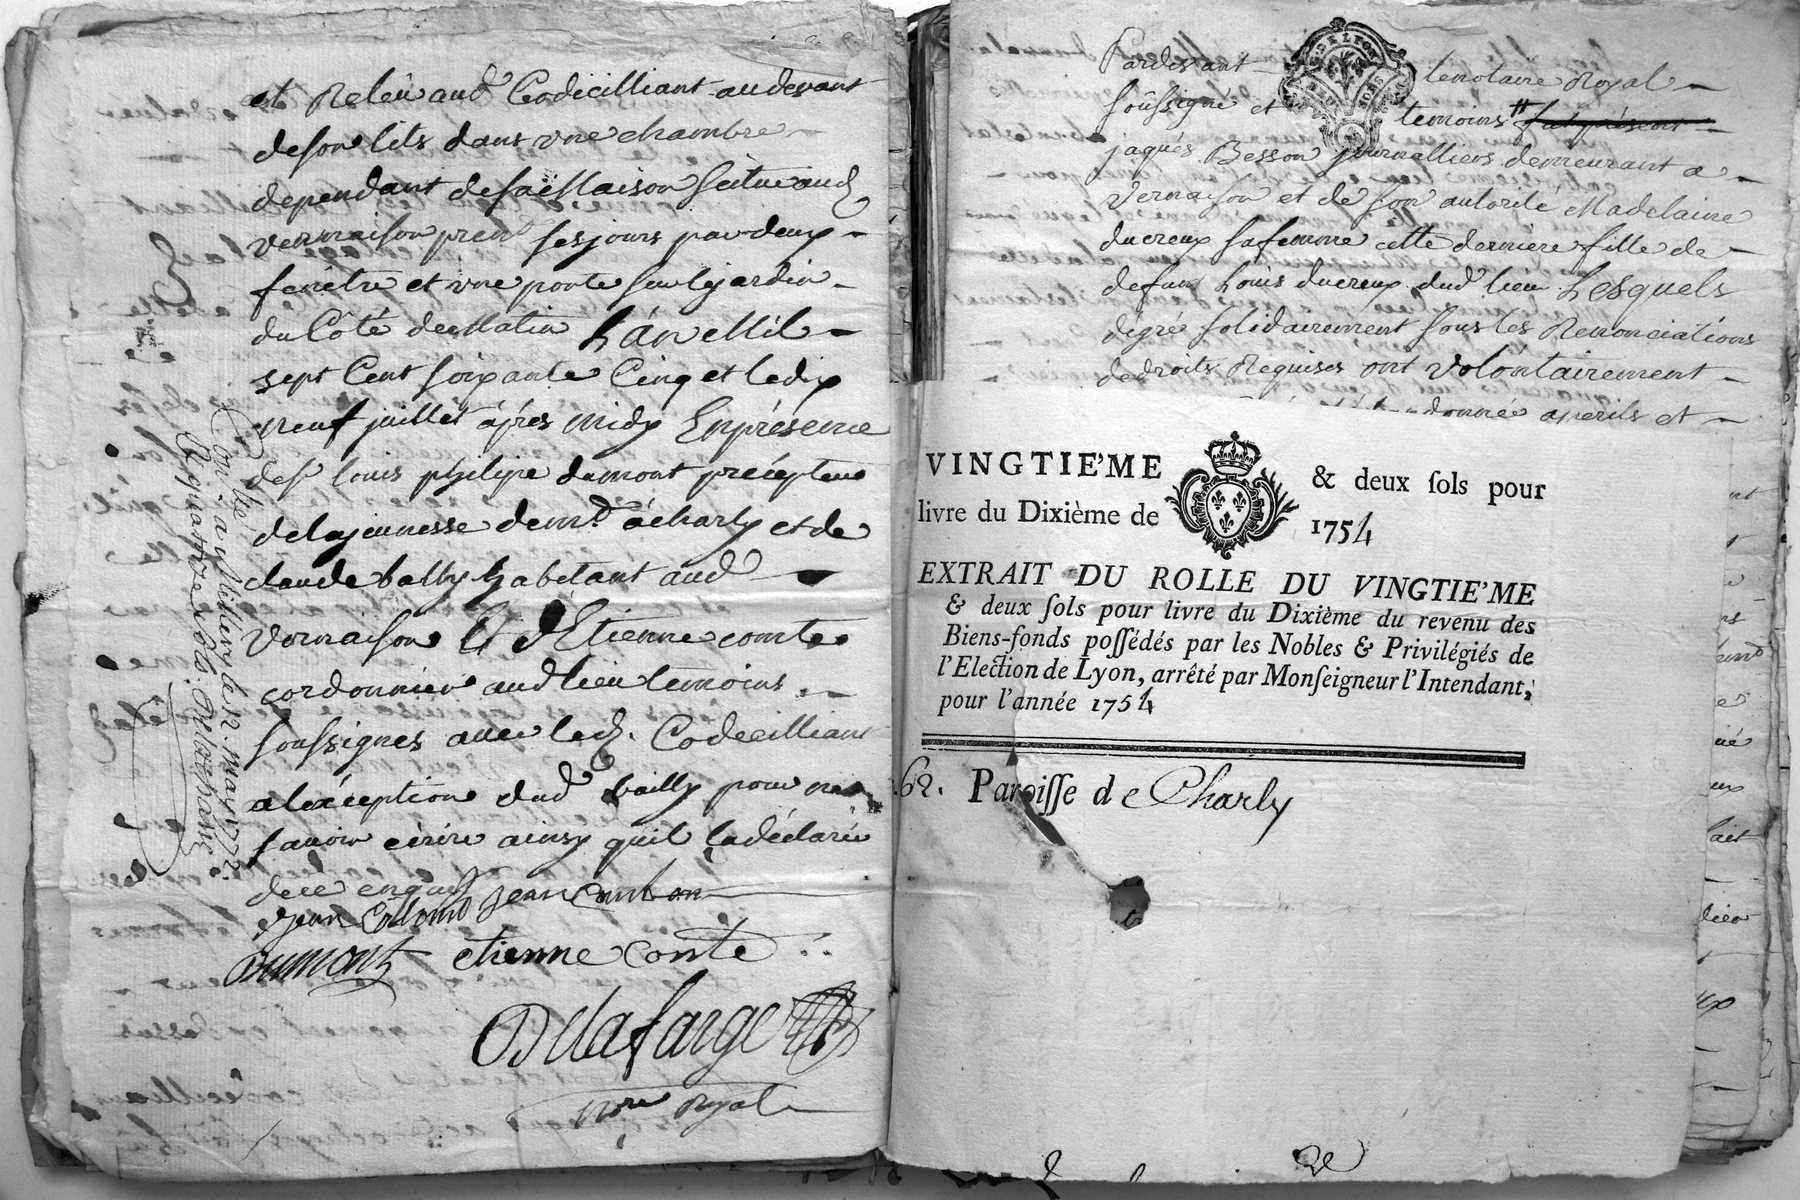 et Releu aud. Codicilliant audevant
deson lits dans vne chambre
dependant desa Maison scitue aud.
vernaison prend sesjours par deux
fenêtre et vne porte sur lejardin
du Côté de Matin L'án Mil
sept Cent soixante Cinq et ledix
neuf juillèt áprès midy Enprésence
des.r louis philipe dumont précepteur
delajeunesse dem.t ácharly et de
claude bally habitant aud.
vernaison Et d'Etienne comte
cordonnier aud lieu temoins
soussignes avec led. Codecilliant
aléxception dud. bailly pour ne
sauoir écrire ainsy quil ladéclaré
dece enquis
jean Collomb jean
Dumont etienne comte
Delafarge
n.re Royal
Con.lé a Millery le 12. may 1772.
Pardevant le notaire Royal
soussigné et temoins # fut présent
jaques Besson journalliers demeurant a
vernaison et de son autorité Madelaine
ducreux safemme cette derniere fille de
defunt Louis ducreux dud. lieu Lesquels
dégré solidairement sous les Renonciations
dedroits Requises ont volontairement
donnée aperils et
DE LYON
VINGTIE'ME & deux ſols pour
livre du Dixième de 1754
EXTRAIT DU ROLLE DU VINGTIE'ME
& deux ſols pour livre du Dixième du revenu des
Biens-fonds poſſédés par les Nobles & Privilégiés de
l'Election de Lyon, arrêté par Monſeigneur l'Intendant,
pour l'année 1754
62. Paroiſſe de Charly